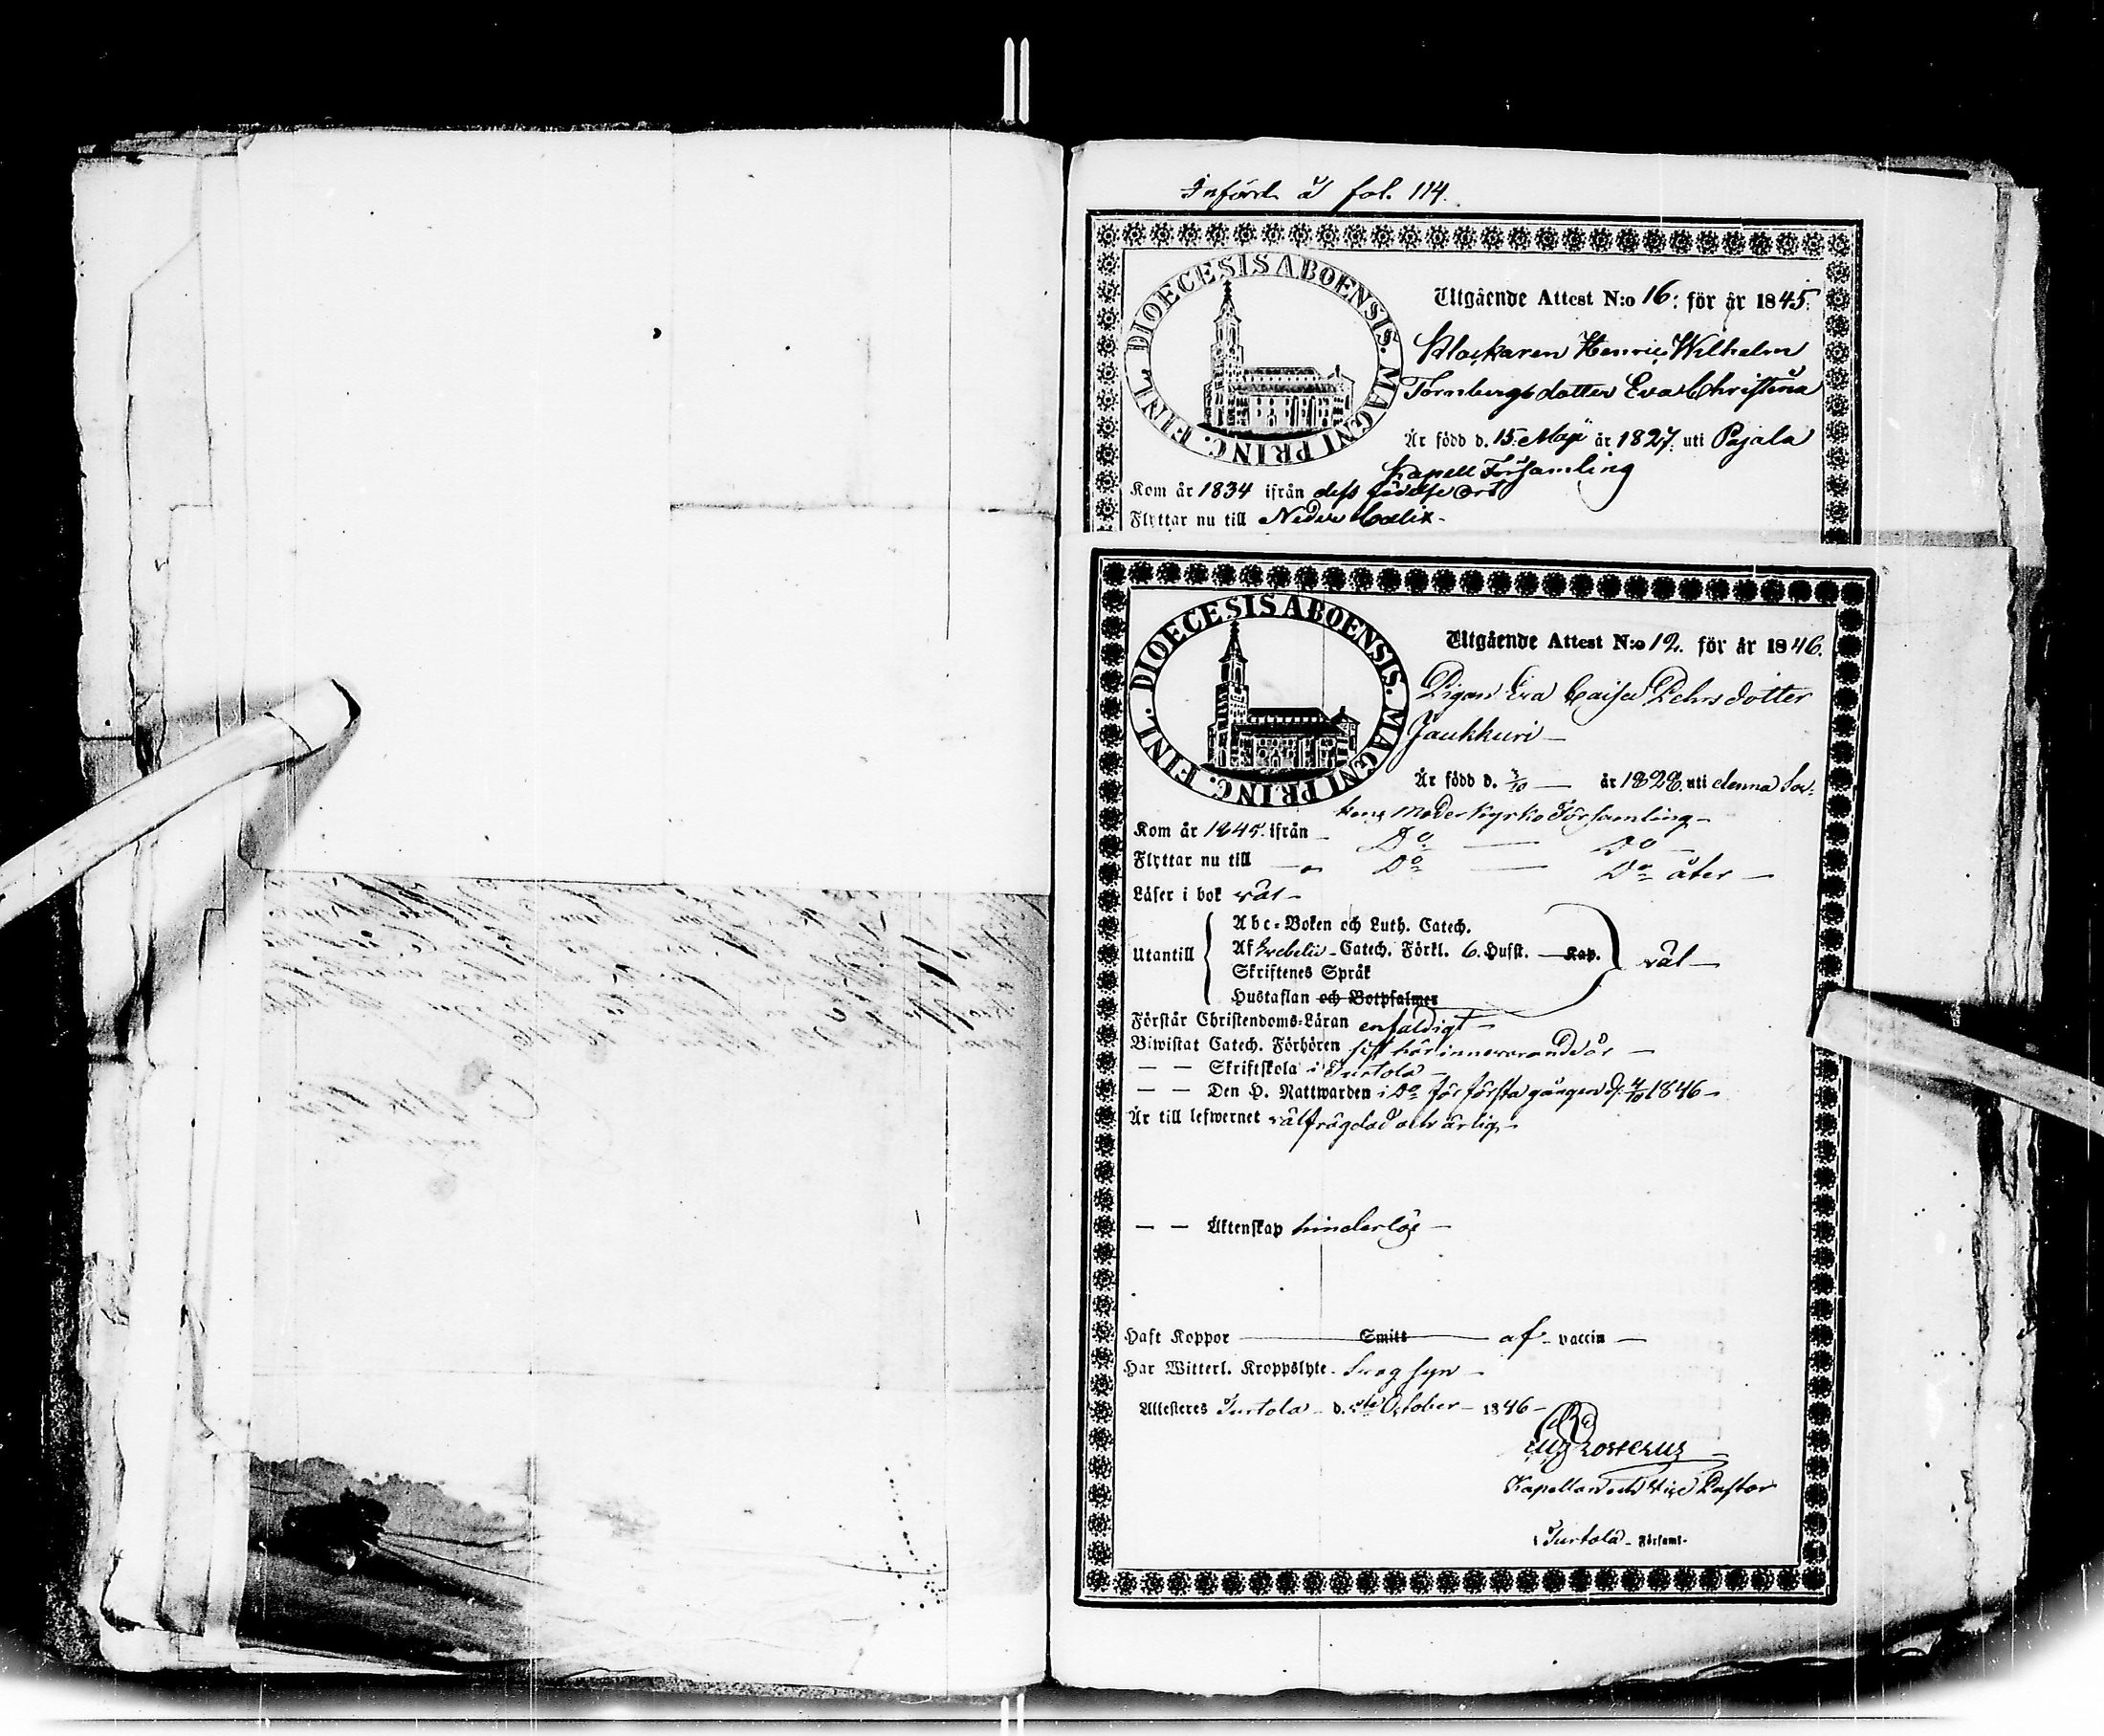 Införd å fol. 114.
DIOECESIS ABOENSIS. MAGNI PRINC. FINL.
Utgående Attest N:o 16: för år 1845.
Klockaren Henric Wilhelm
Törnbergs dotter Eva Christina
Är född d. 15 Maji år 1827. uti Pajala
Kapell Församling
Kom år 1834 ifrån dess födelse Ort
Flyttar nu till Neder Calix-
DIOECESIS ABOENSIS. MAGNI PRINC. FINL.
Utgående Attest N:o 12. för år 1846.
Pigan Eva Caisa Pehrsdotter
Jaukkuri -
Är född d. — år 1828. uti denna Soc-
kens Moderkyrko Församling -
Kom år 1845. ifrån - Do — Do -
Flyttar nu till — Do — Do åter —
Läser i bok väl -
Abc-Boken och Luth. Catech.
Utantill Af Svebelii - Catech. Förkl. 6. Hufst. — Kap. väl —
Skriftenes Språk
Hustaflan och Botpsalmer
Förstår Christendoms-Läran enfaldigt -
Biwistat Catech. Förhören sist härinnevarande år —
— — Skriftskola i Turtola -
— — Den H. Nattwarden i Do för första gången d. 4/10 1846 -
Är till lefwernet välfrägdad och ärlig -
— — Äktenskap hinderlös —
Haft Koppor — Smitt — af - vaccin —
Har Witterl. Kroppslyte - Svag syn -
Attesteres Turtola - d. October - 1846 -
Kapellan och Vice Pastor
i Turtola - Församl.